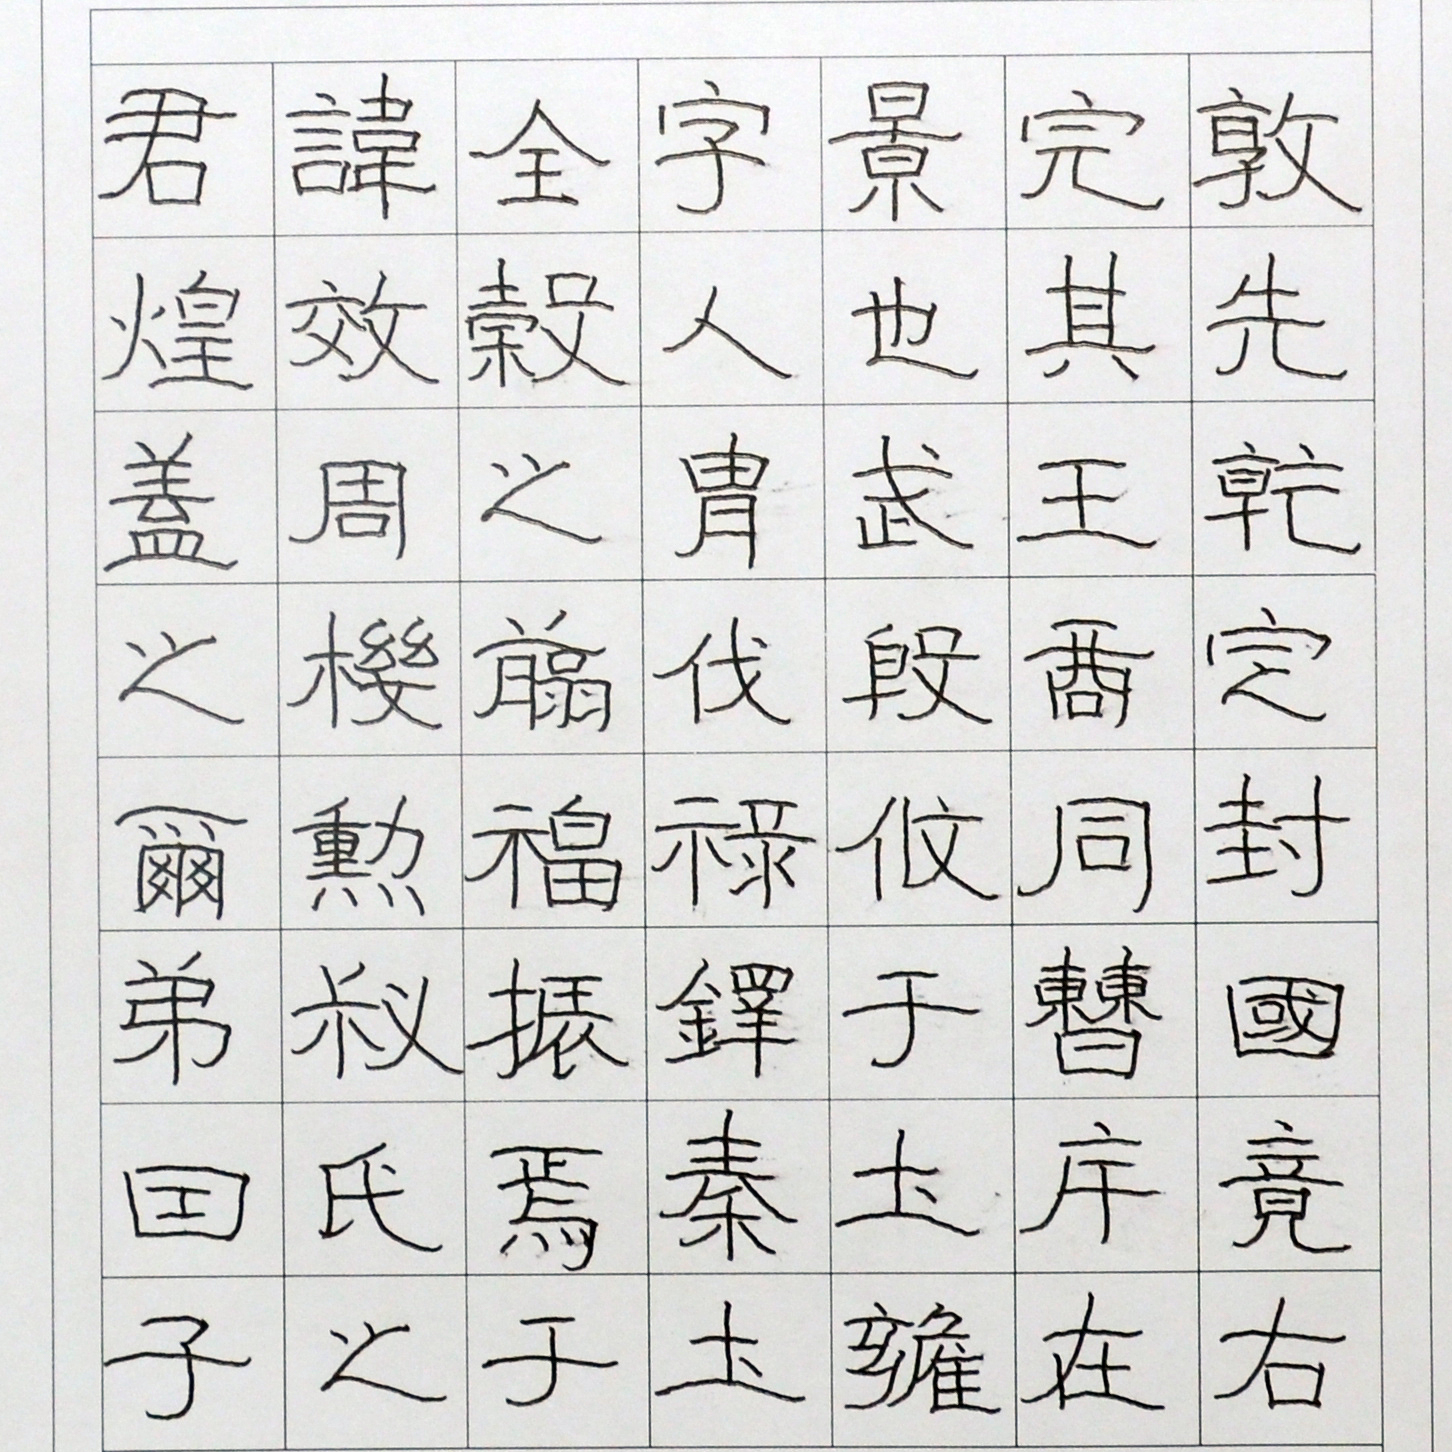 君諱全字景完敦
煌效穀人也其先
蓋周之胄武王乾
之機翦伐殷商定
爾勳福祿攸同封
弟叔振鐸于曹國
因氏焉秦土斥竟
子之于土雍在右